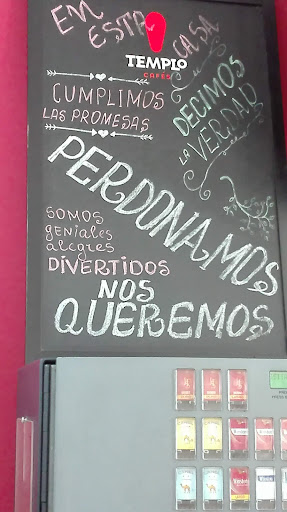 EN
ESTA
CASA
TEMPLO
CAFÉS
CUMPLIMOS
LAS PROMESAS
DECIMOS
LA VERDAD
PERDONAMOS
SOMOS
geniales
alegres
DIVERTIDOS
NOS
QUEREMOS